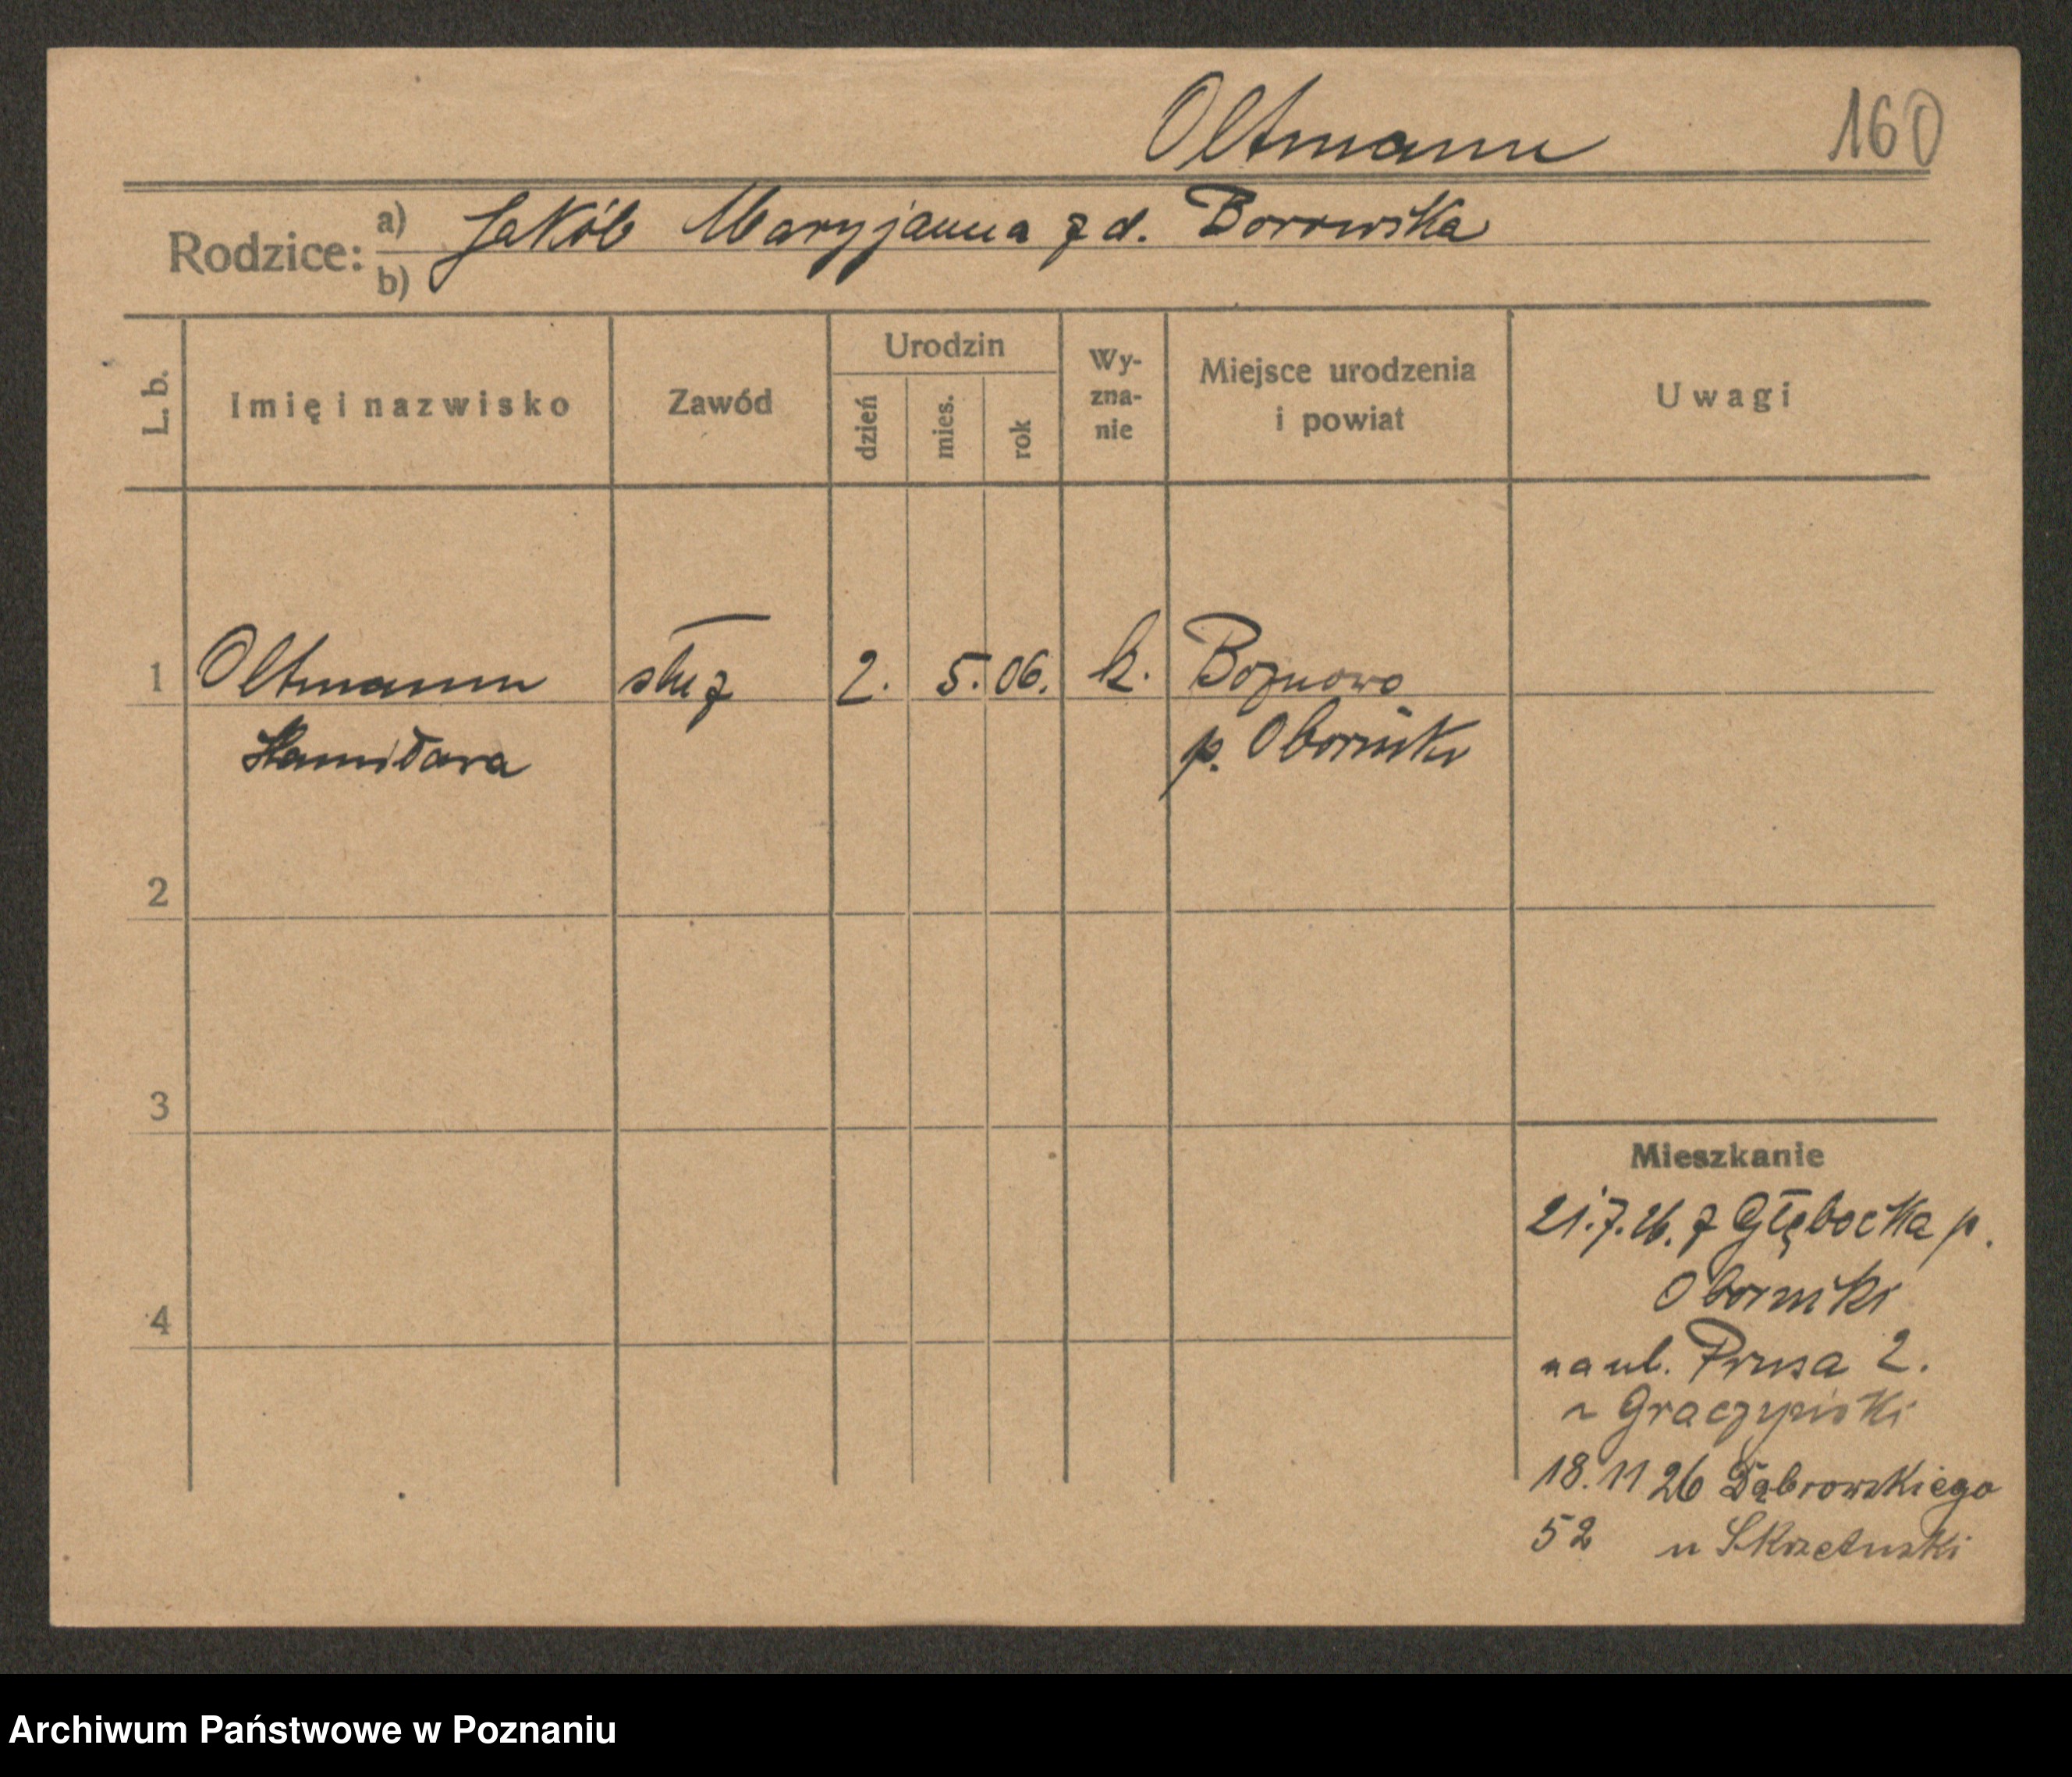 Oltmann 160
Rodzice: a) Jakób Maryjanna z d. Borowska
b)
L. b. Imię i nazwisko Zawód Urodzin dzień mies. rok Wy-zna-nie Miejsce urodzenia i powiat Uwagi
1 Oltmann służ 2. 5. 06. k. Boguowo
Stanisława p. Oborniki
2
3
Mieszkanie
21.7.26. z Głębocka p.
Oborniki
4
na ul. Prusa 2.
18.11 26 Dąbrowskiego
52 u Skrzetuski
Archiwum Państwowe w Poznaniu